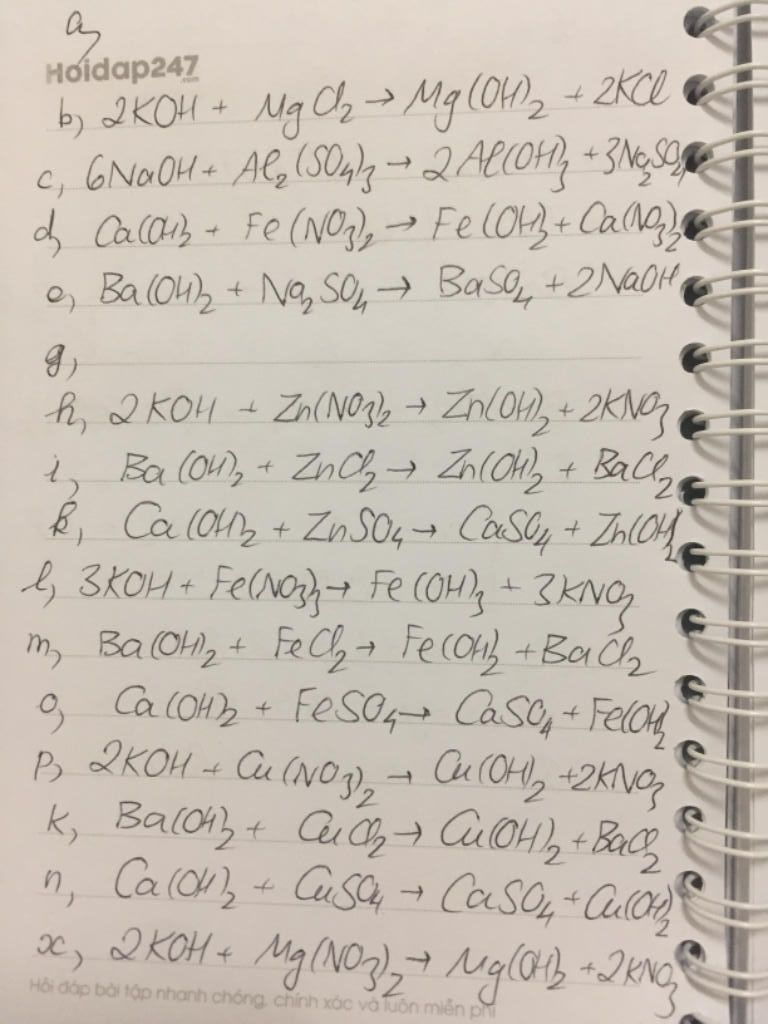 a,
Hoidap247
.com
b, 2KOH + MgCl₂ → Mg(OH)₂ + 2KCl
c, 6NaOH + Al₂(SO₄)₃ → 2Al(OH)₃ + 3Na₂SO₄
d, Ca(OH)₂ + Fe(NO₃)₂ → Fe(OH)₂ + Ca(NO₃)₂
e, Ba(OH)₂ + Na₂SO₄ → BaSO₄ + 2NaOH
g,
h, 2KOH + Zn(NO₃)₂ → Zn(OH)₂ + 2KNO₃
i, Ba(OH)₂ + ZnCl₂ → Zn(OH)₂ + BaCl₂
k, Ca(OH)₂ + ZnSO₄ → CaSO₄ + Zn(OH)₂
l, 3KOH + Fe(NO₃)₃ → Fe(OH)₃ + 3KNO₃
m, Ba(OH)₂ + FeCl₂ → Fe(OH)₂ + BaCl₂
o, Ca(OH)₂ + FeSO₄ → CaSO₄ + Fe(OH)₂
p, 2KOH + Cu(NO₃)₂ → Cu(OH)₂ + 2KNO₃
k, Ba(OH)₂ + CuCl₂ → Cu(OH)₂ + BaCl₂
n, Ca(OH)₂ + CuSO₄ → CaSO₄ + Cu(OH)₂
x, 2KOH + Mg(NO₃)₂ → Mg(OH)₂ + 2KNO₃
Hỏi đáp bài tập nhanh chóng, chính xác và luôn miễn phí